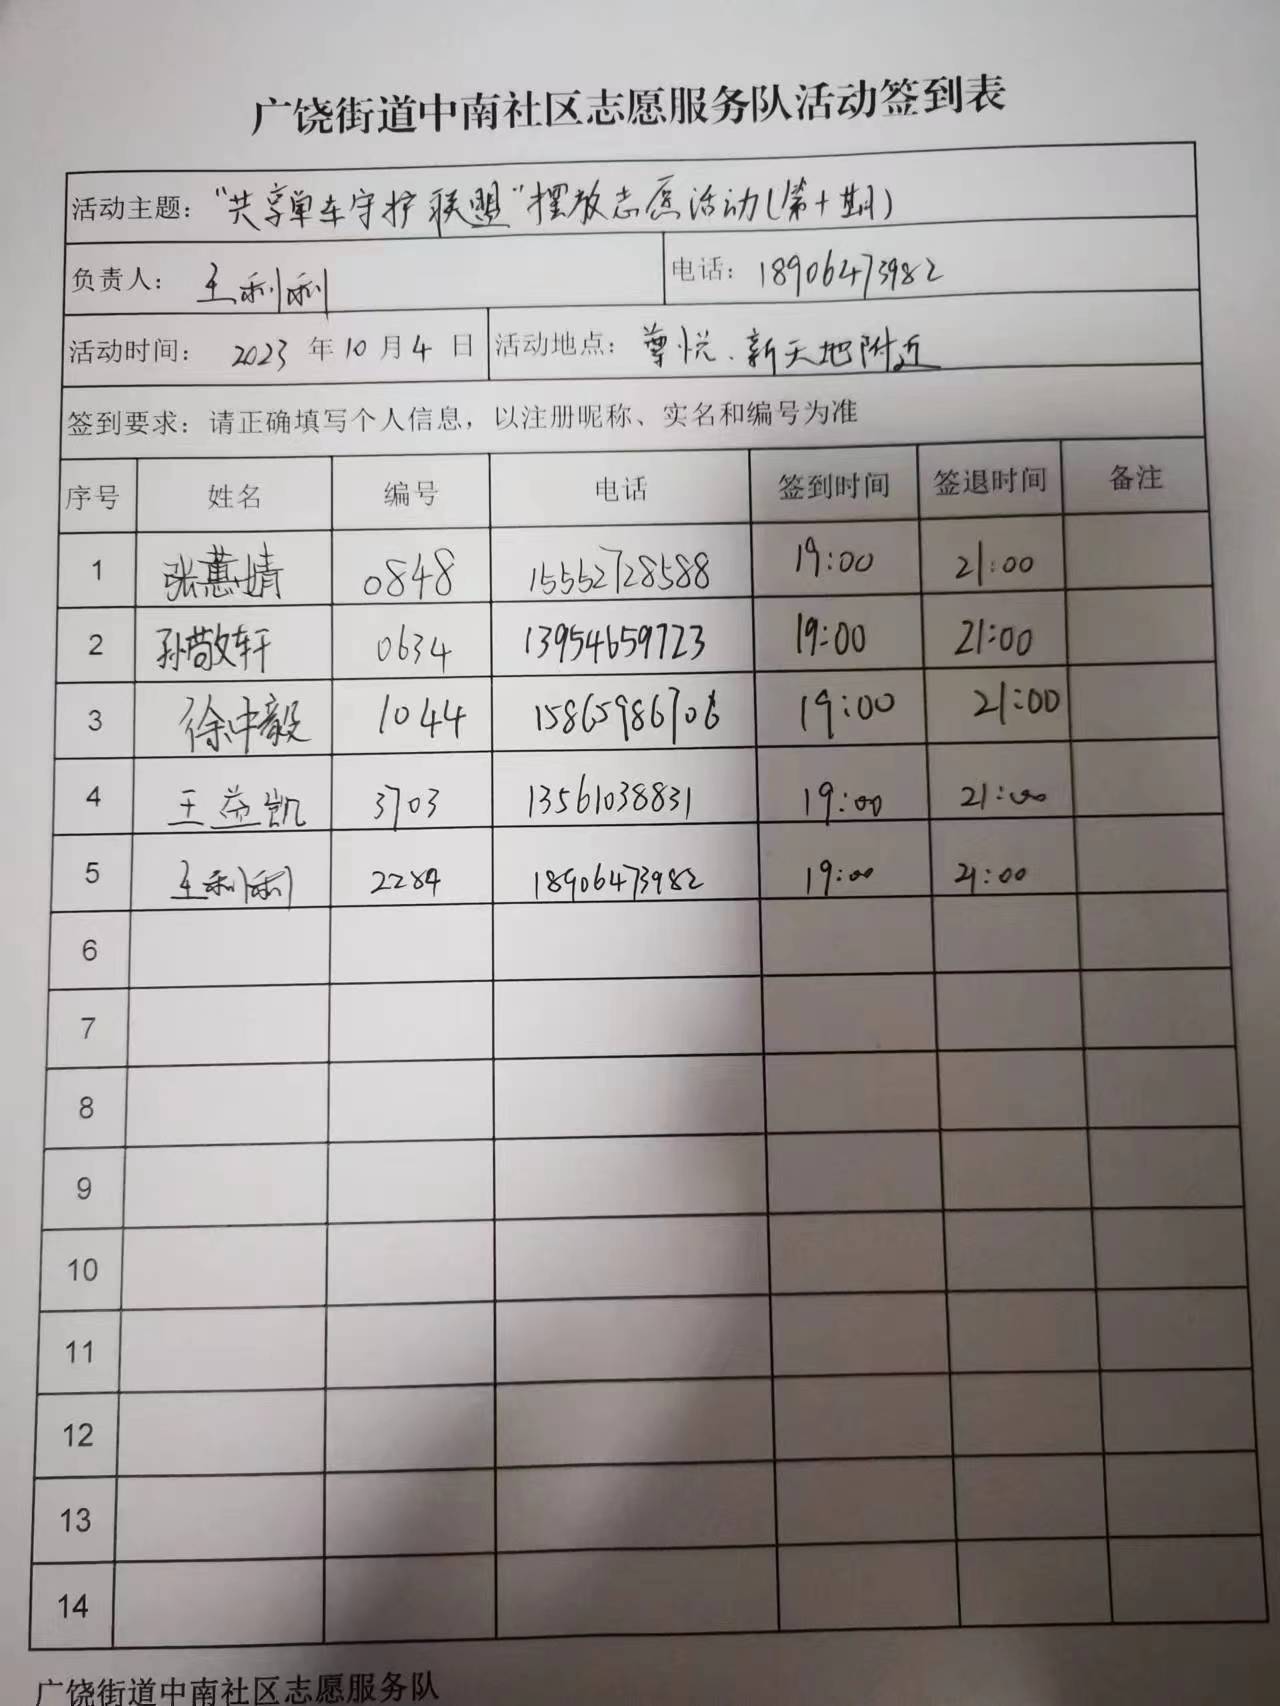 广饶街道中南社区志愿服务队活动签到表
活动主题：“共享单车守护联盟”摆放志愿活动(第十期)
负责人：王利利 电话：18906473982
活动时间：2023年10月4日 活动地点：尊悦、新天地附近
签到要求：请正确填写个人信息，以注册昵称、实名和编号为准
序号 姓名 编号 电话 签到时间 签退时间 备注
1 张蕙婧 0848 15552728588 19:00 21:00
2 孙敬轩 0634 13954659723 19:00 21:00
3 徐中毅 1044 15865986706 19:00 21:00
4 王益凯 3703 13561038831 19:00 21:00
5 王利利 2284 18906473982 19:00 21:00
6
7
8
9
10
11
12
13
14
广饶街道中南社区志愿服务队